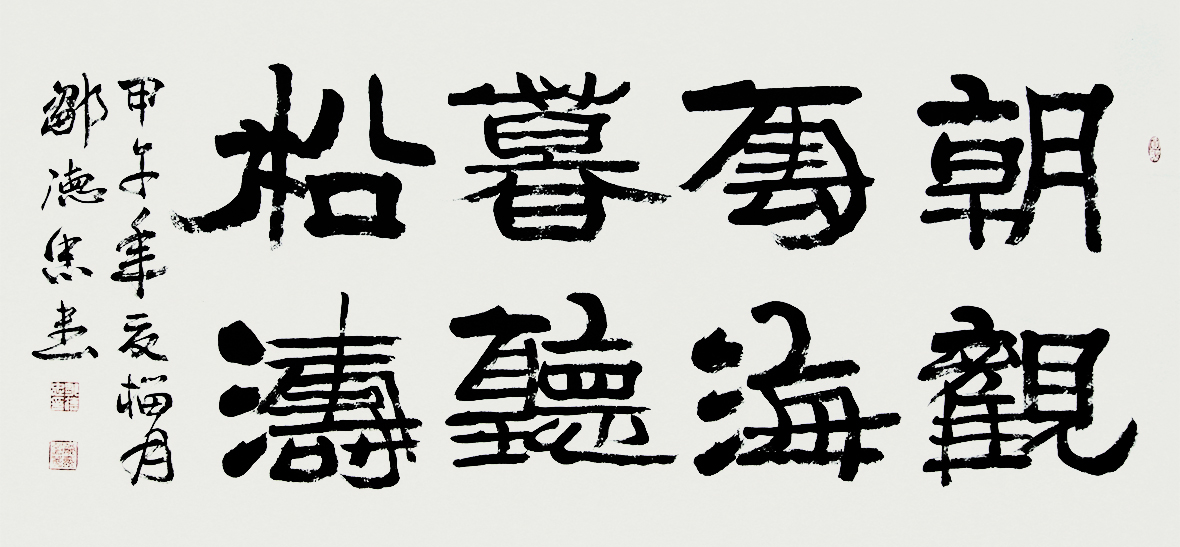 朝觀
雲海
暮聽
松濤
甲午年夏榴月
鄒德忠書